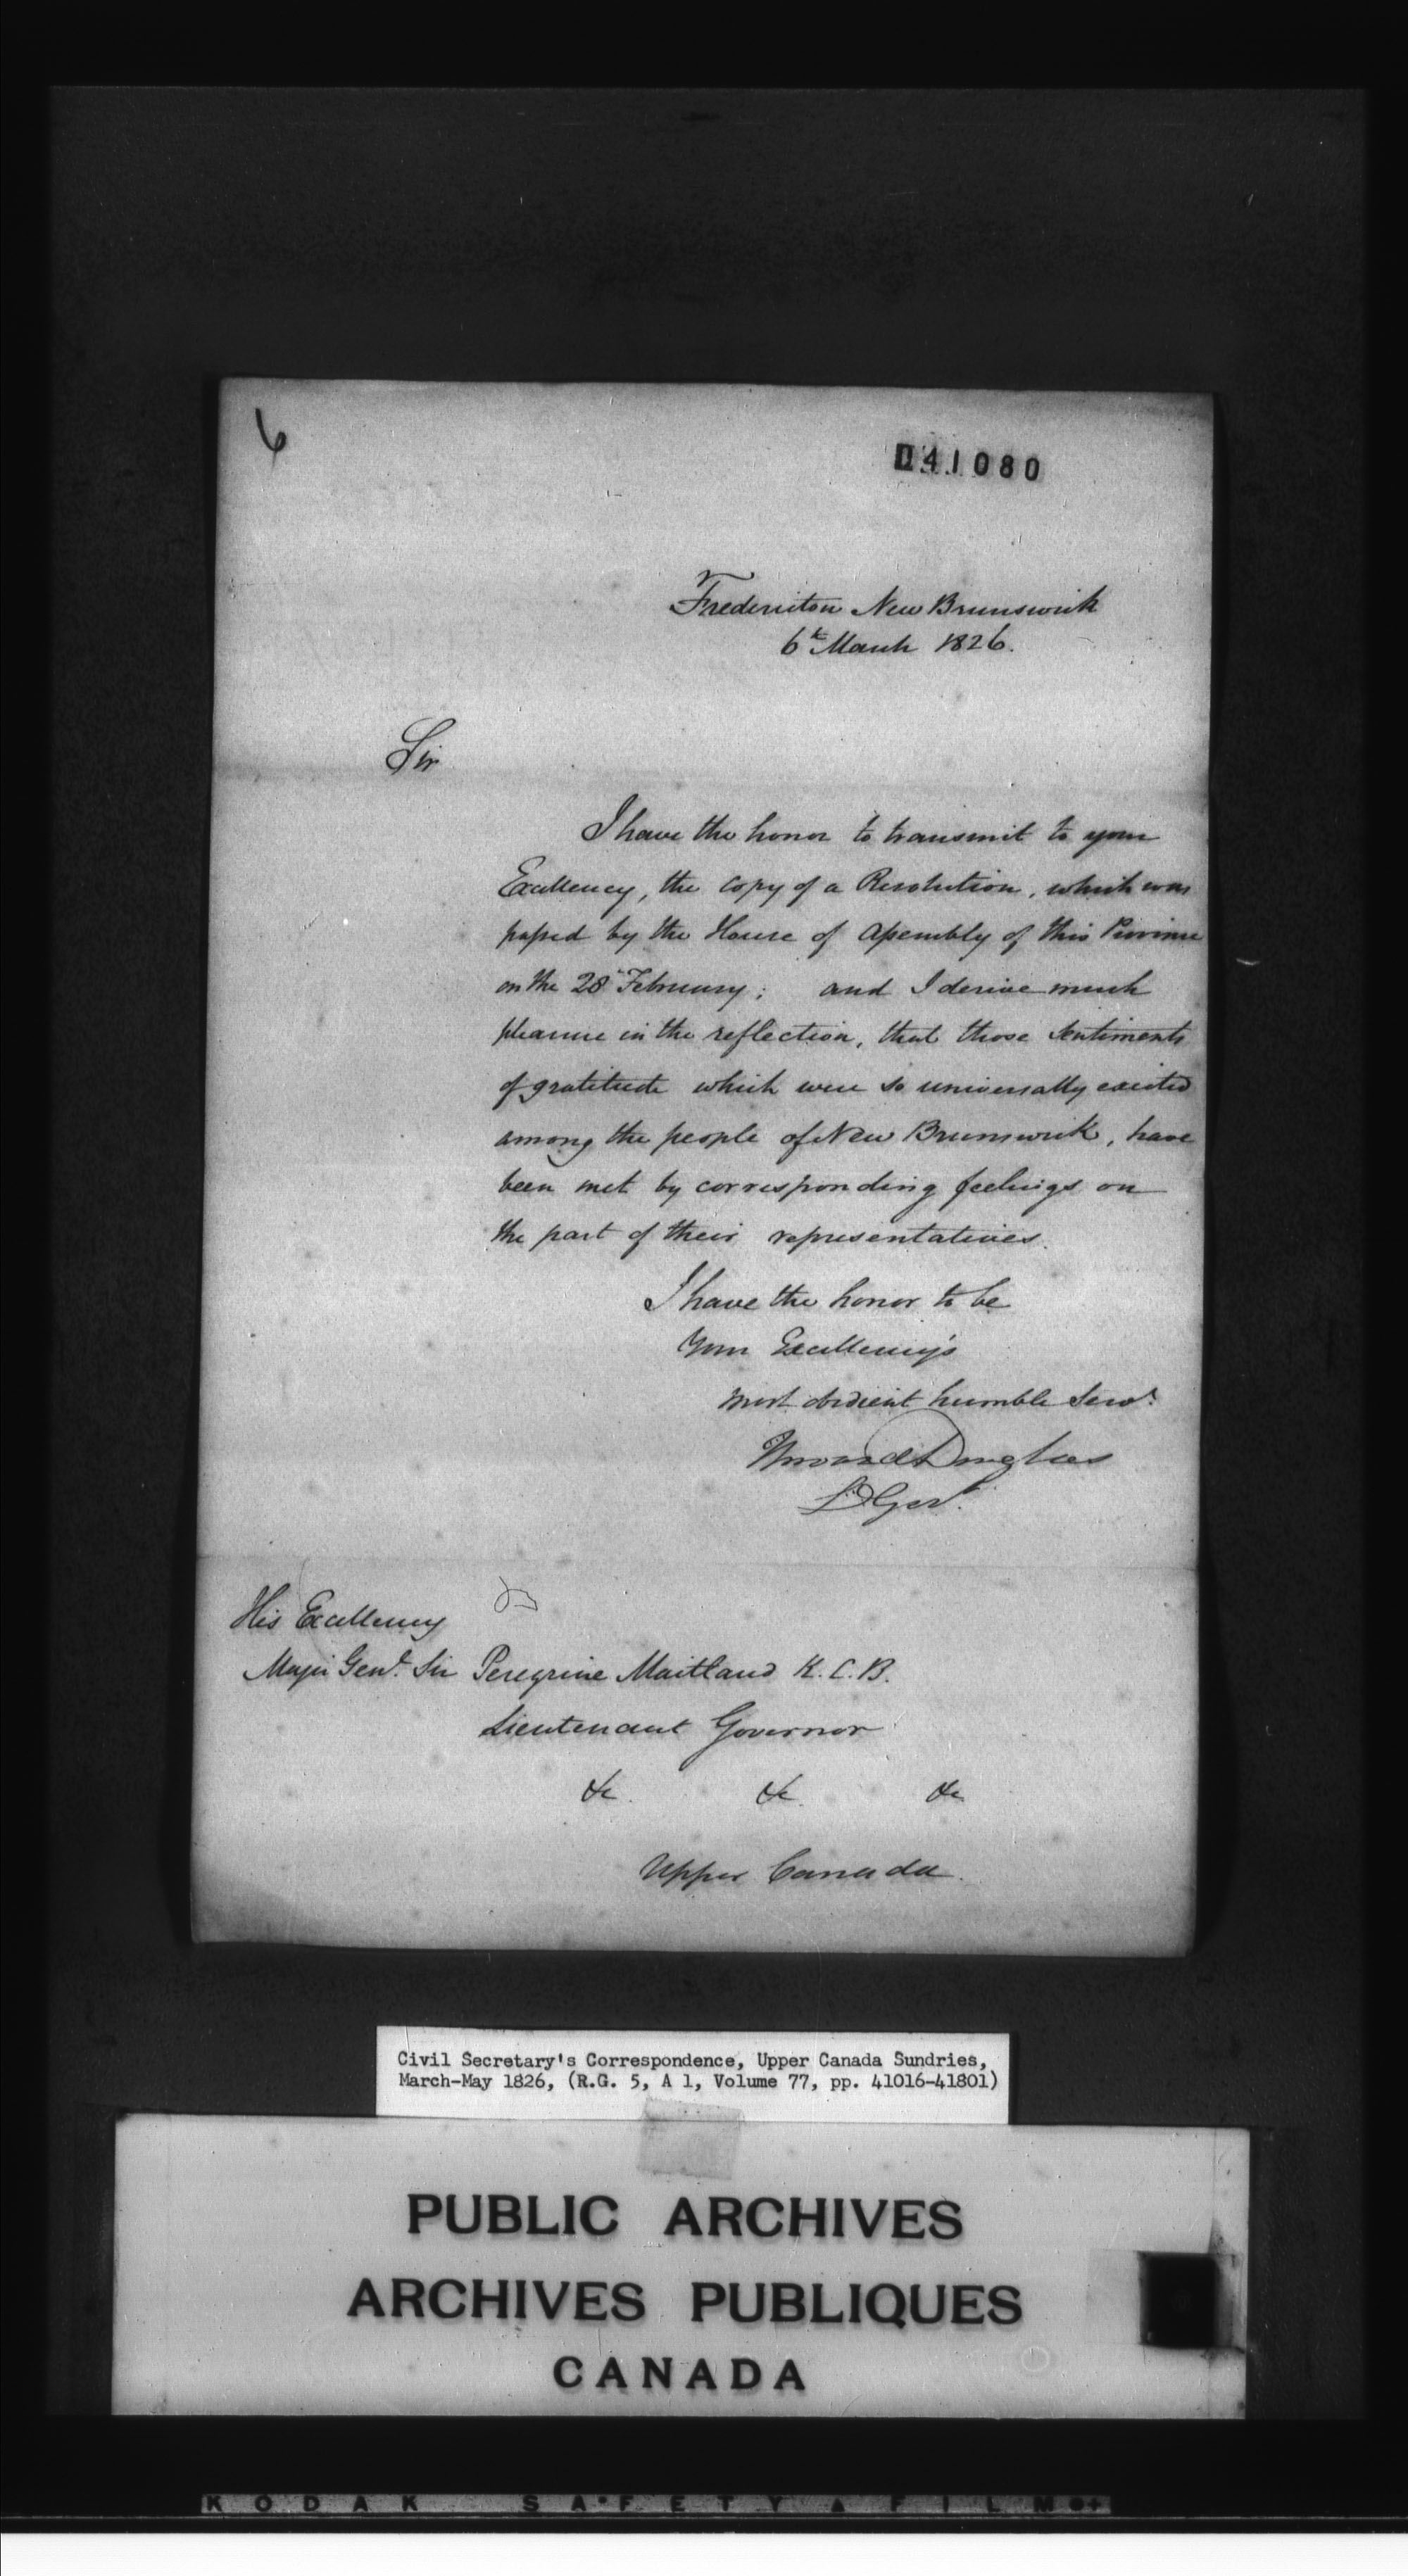 6
041080
Fredericton New Brunswick
6th March 1826.
Sir
I have the honor to transmit to your
Excellency, the copy of a Resolution, which was
passed by the House of Assembly of this Province
on the 28th February; and I derive much
pleasure in the reflection, that those sentiments
of gratitude which were so universally excited
among the people of New Brunswick, have
been met by corresponding feelings on
the part of their representatives.
I have the honor to be
Your Excellency's
most obedient humble Servt.
Howard Douglas
Lt Govr.
His Excellency
Major Genl. Sir Peregrine Maitland K.C.B.
Lieutenant Governor
&c. &c. &c.
Upper Canada.
Civil Secretary's Correspondence, Upper Canada Sundries,
March-May 1826, (R.G. 5, A 1, Volume 77, pp. 41016-41801)
PUBLIC ARCHIVES
ARCHIVES PUBLIQUES
CANADA
KODAK SAFETY FILM